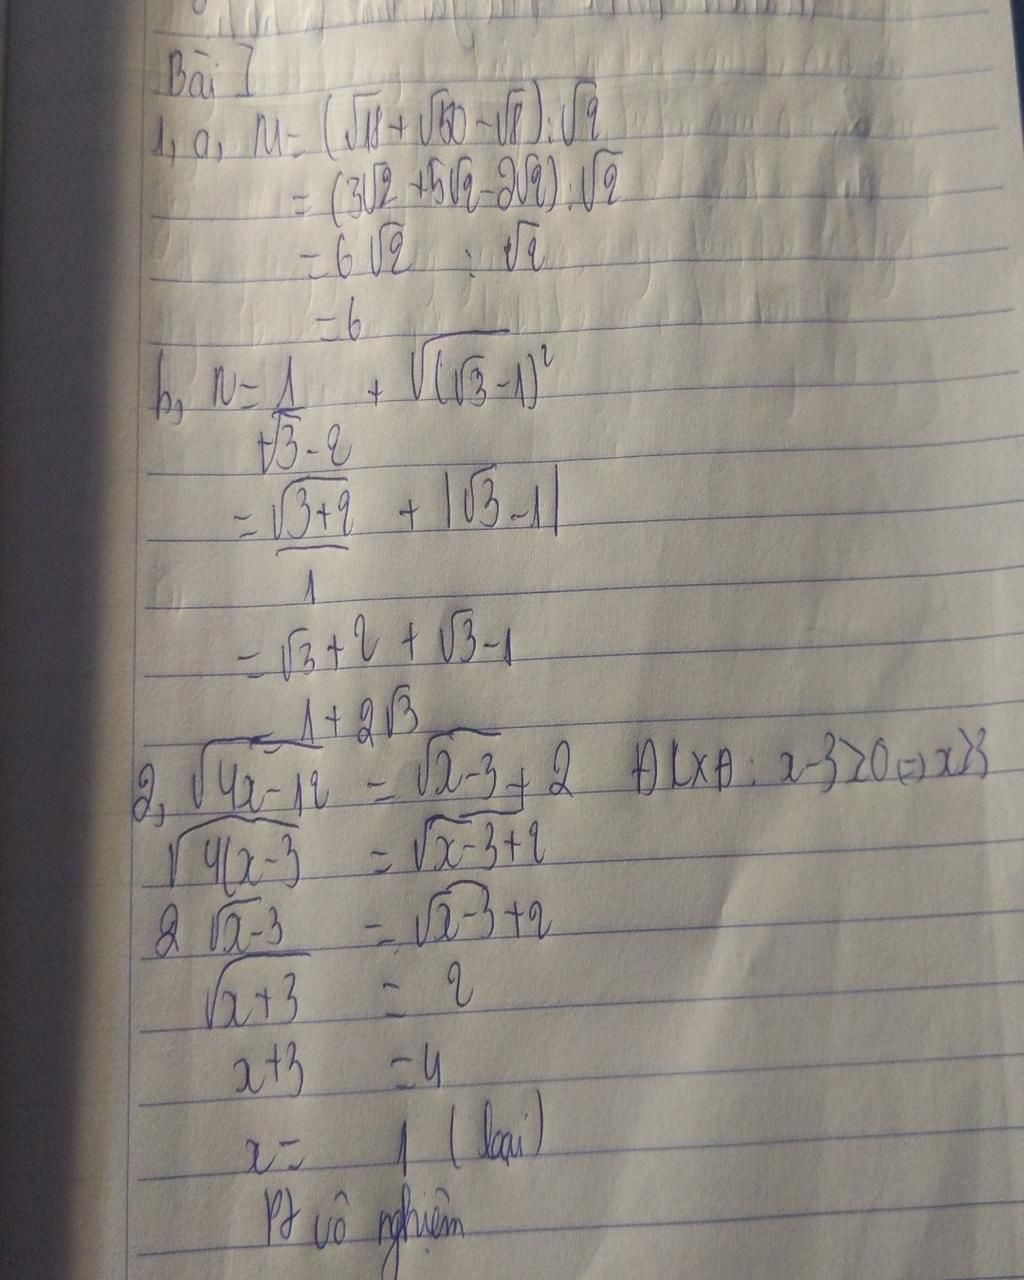 Bài I
1, a, M = (√18 + √50 - √8) : √2
= (3√2 + 5√2 - 2√2) : √2
= 6√2 : √2
= 6
b, N = 1/(√3 - 2) + √((√3 - 1)²)
= √(3+2)/1 + |√3 - 1|
= √3 + 2 + √3 - 1
= 1 + 2√3
2, √(4x-12) = √(x-3) + 2 ĐKXĐ: x-3 ≥ 0 => x ≥ 3
√(4(x-3) = √(x-3)+2
2 √x-3 = √(x-3)+2
√(x+3) = 2
x+3 = 4
x = 1 (loại)
Pt vô nghiệm